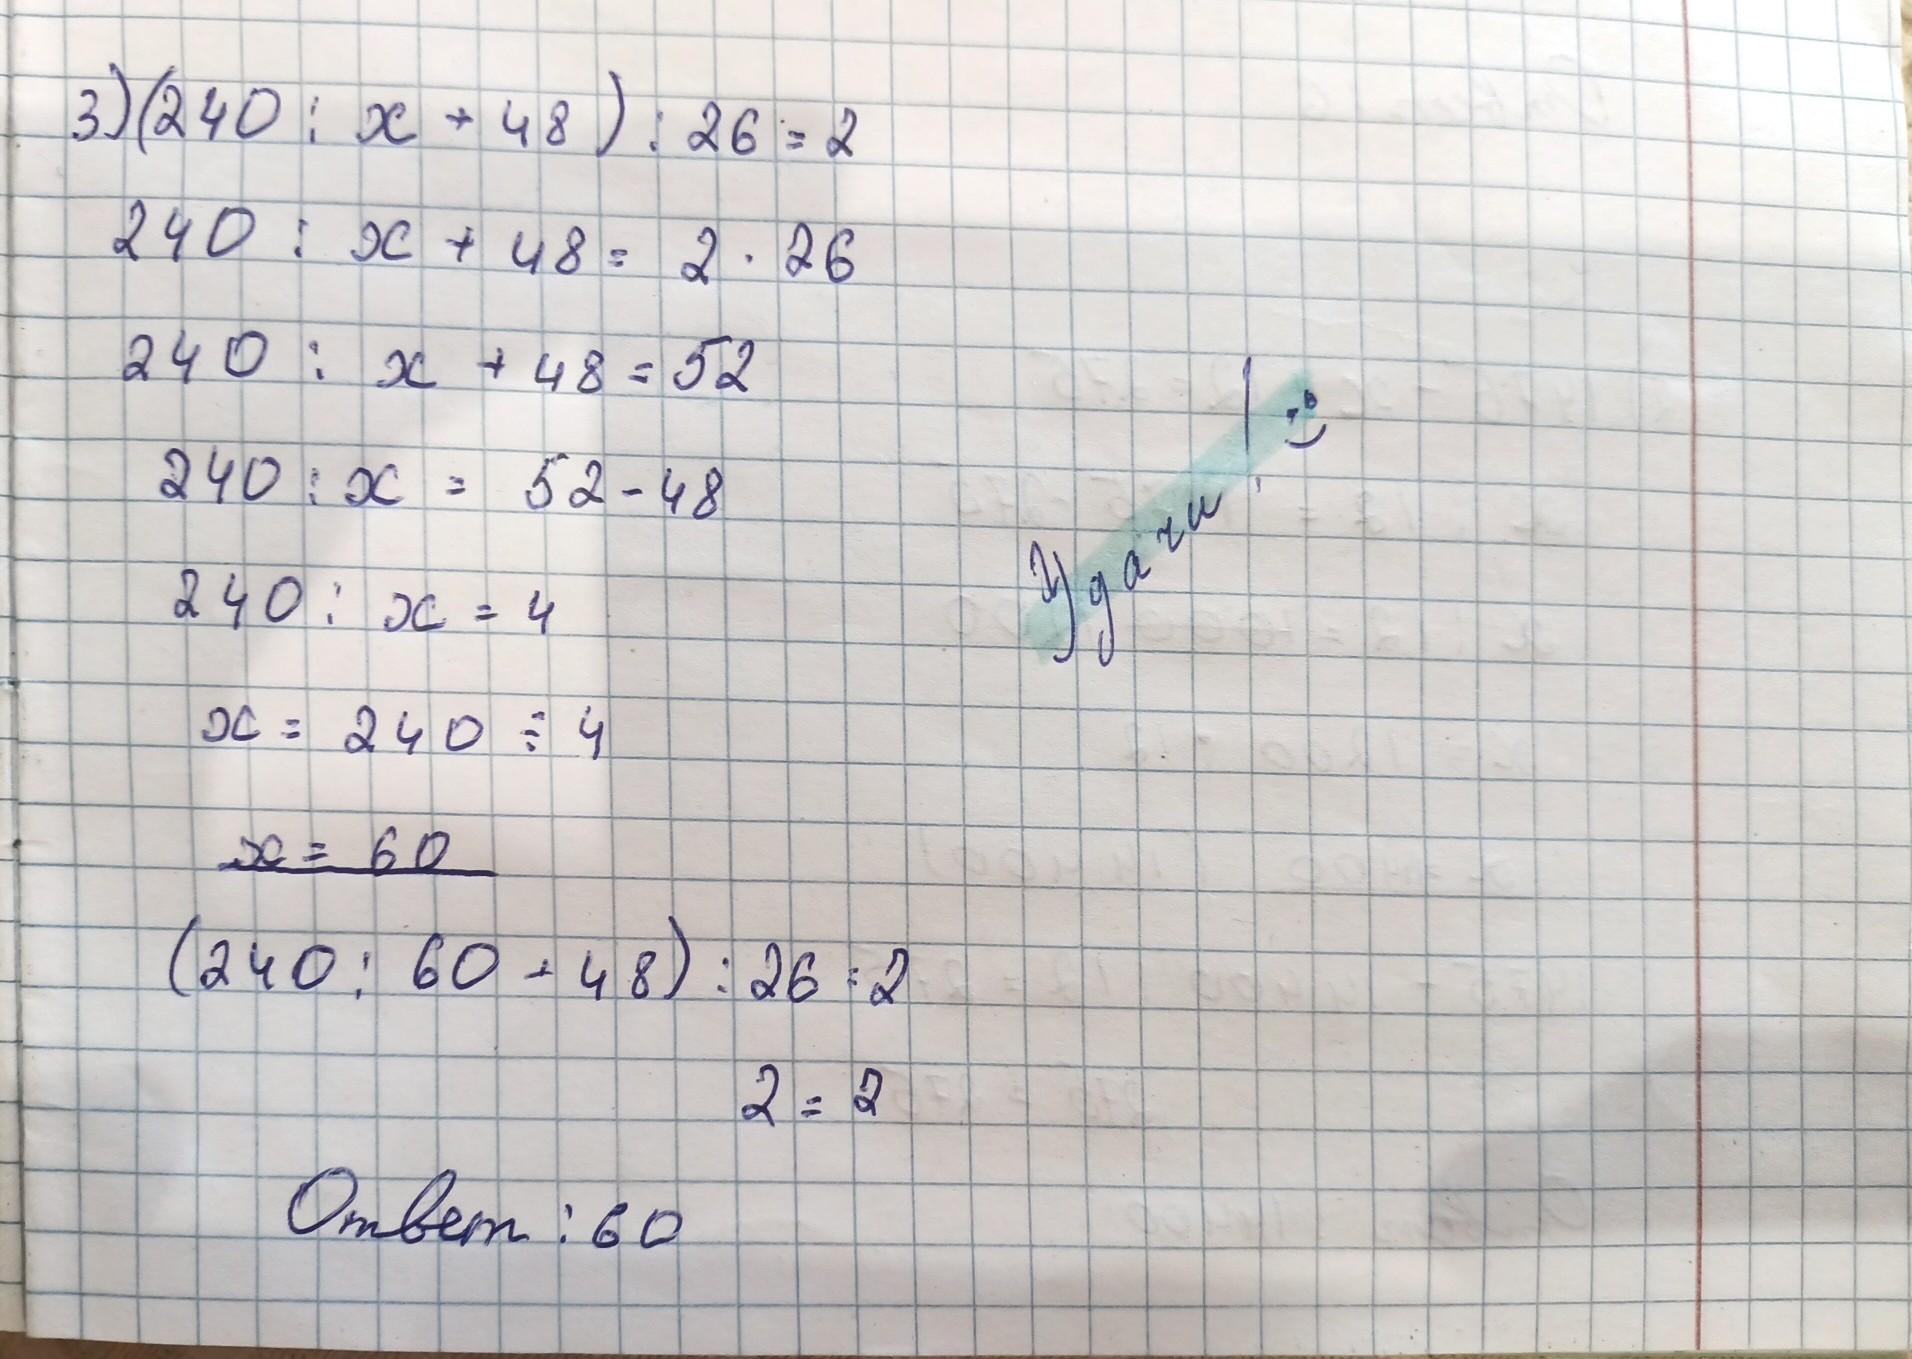 3) (240 : x + 48) : 26 = 2
240 : x + 48 = 2 · 26
240 : x + 48 = 52
240 : x = 52 - 48
240 : x = 4
x = 240 : 4
x = 60
(240 : 60 + 48) : 26 = 2
2 = 2
Ответ : 60
Удачи! :)